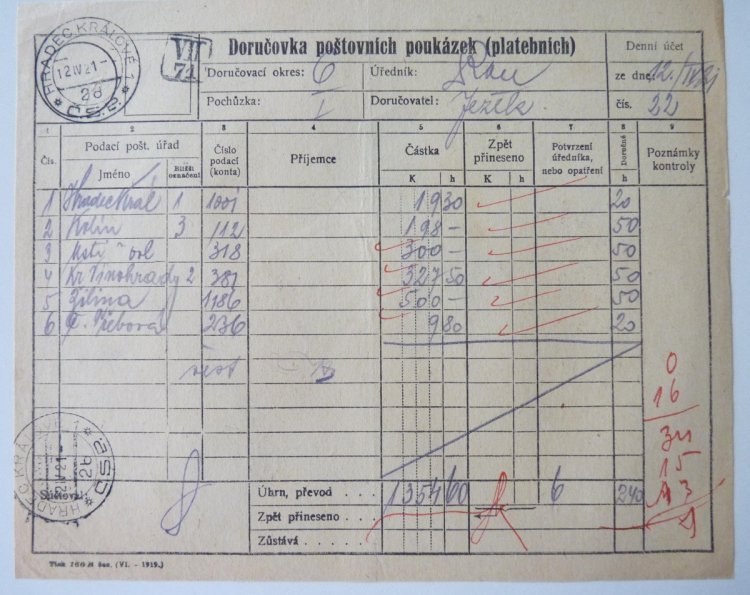 HRADEC KRÁLOVÉ 1
12 IV 21
ČSP
VII 71
Doručovka poštovních poukázek (platebních)
Denní účet
Doručovací okres: 6 Úředník:
ze dne: 12./IV 21
Pochůzka: I Doručovatel: Ježek.
čís. 22
1 2 3 4 5 6 7 8 9
Čís. Podací pošt. úřad Jméno Bližší označení Číslo podací (konta) Příjemce Částka K h Zpět přineseno K h Potvrzení úředníka, nebo opatření Doručné h Poznámky kontroly
1 Hradec Král 1 1001 19 30 20
2 Kolín 3 112 198 - 50
3 Ústí 318 300 - 50
4 Kr Vinohrady 2 381 327 50 50
5 Žilina 1186 500 - 50
6 Č. Třebová 236 9 80 20
0
16
15
HRADEC KRÁLOVÉ 1
IV 21
2b
Úhrn, převod . . . 1354 60 6 240
Zpět přineseno . . .
Zůstává . . .
Tisk 160 B čes. (VI. - 1919.)